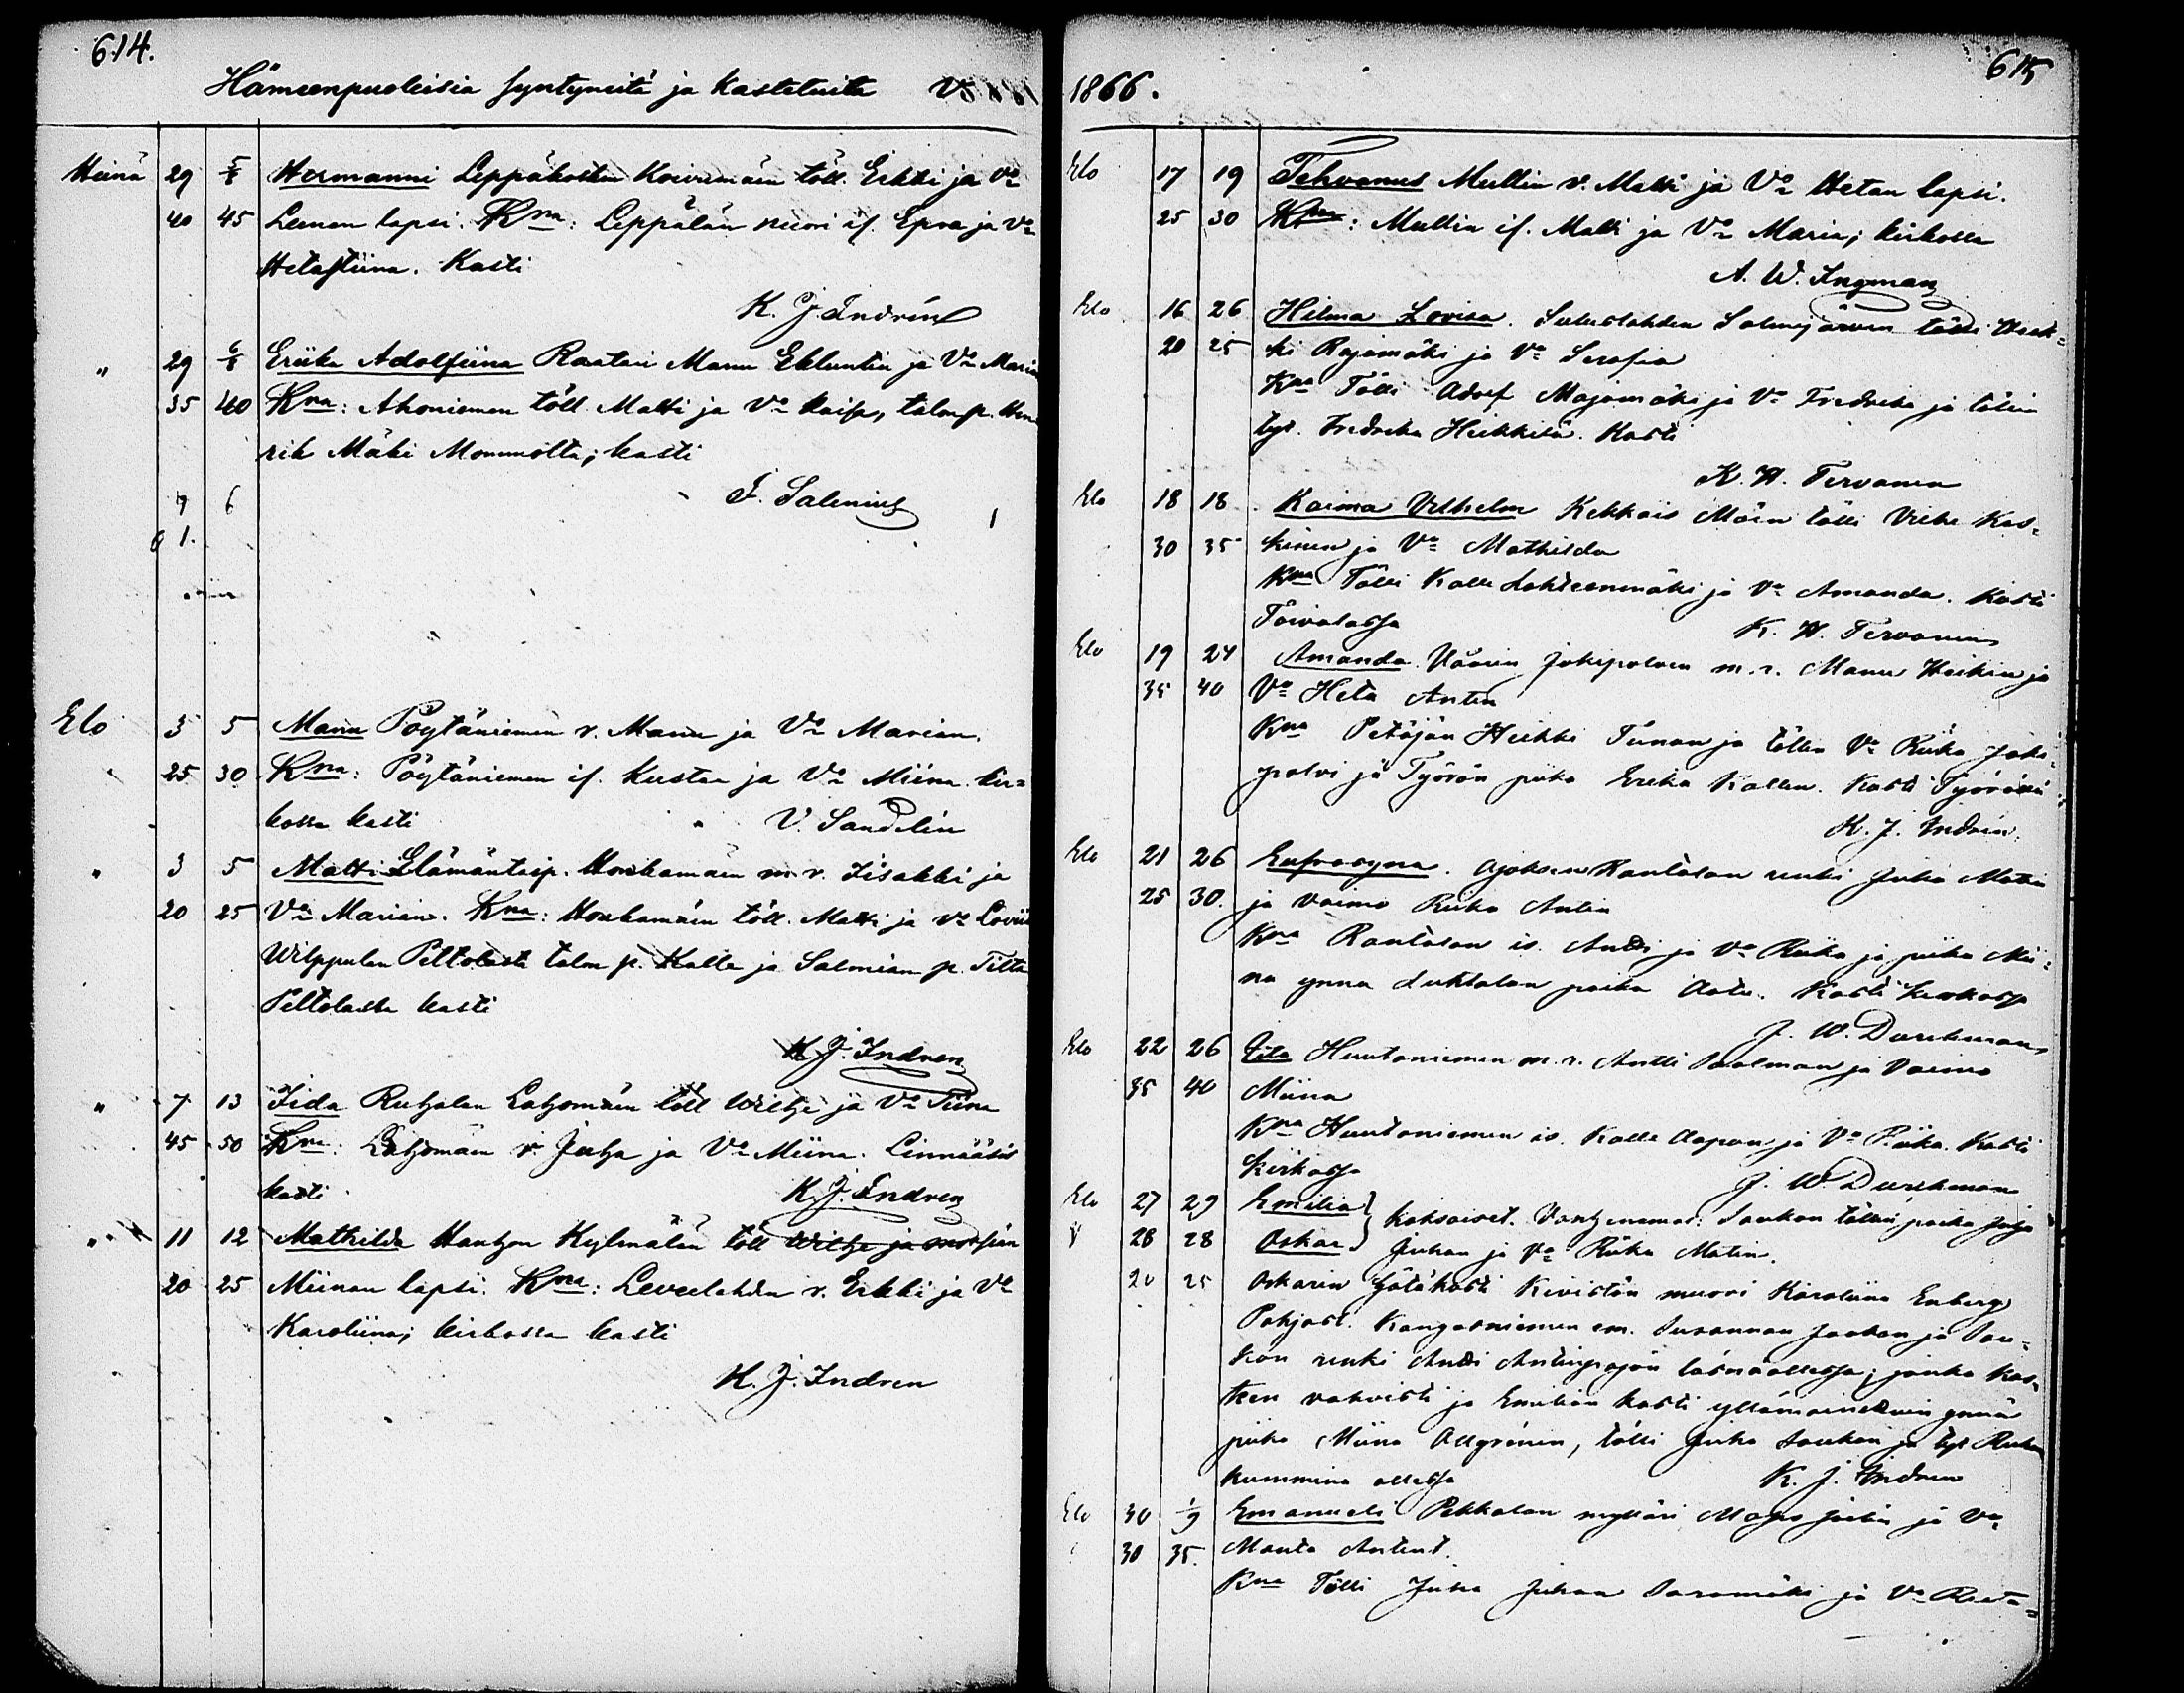 614.
Hämeenpuoleisia syntyneitä ja kastetuita V.
Heinä 29 5/8 Hermanni Leppäkosken Koivumäen töll. Erkki ja Vo
40 45 Leenan lapsi. Kna: Leppälän nuori is. Epra ja Vo
Hetastiina. Kasti
K. J. Indrén
" 29 6/8 Eriika Adolfiina Raatari Manu Ekluntin ja Vo Maria
35 40 Kna: Ahoniemen töll. Matti ja Vo Kaisa, talon p. Hen
rik Mäki Mommolta; kasti
J. Salenius
7 6
1.
Elo 3 5 Manu Pöytäniemen r. Manu ja Vo Marian.
25 30 Kna: Pöytäniemen is. Kustaa ja Vo Miina. kir=
kossa kasti V. Sandelin
" 3 5 Matti Elämäntaip. Honkamäen m. r. Iisakki ja
20 25 Vo Marian. Kna: Honkamäen töll. Matti ja Vo Loviis
Wilppulan Peltolasta talon p. Kalle ja Salmian p. Tilta
Peltolassa kasti
K. J. Indren
" 7 13 Iida Ruhalan Lahomäen töll Wilhe ja Vo Tiina
45 50 Kna: Lahomäen r. Juha ja Vo Miina. Linnääsis
kasti K. J. Indren
" 11 12 Mathilda Hanhon Kylmälän töll Wilhe ja morsian
20 25 Miinan lapsi. Kna: Leveelahden r. Erkki ja Vo
Karoliina; kirkossa kasti
K. J. Indren
1866. 615
Elo 17 19 Tehvanus Mullin r. Matti ja Vo Hetan lapsi.
25 30 Kna: Mullin is. Matti ja Vo Maria; kirkolla
A. W. Ingman
Elo 16 26 Hilma Lovisa. Salmejärven tölli Heik=
20 25 ki Rajamäki ja Vo Serafia
Kna Tölli Adolf Majamäki ja Vo Fredrika ja tölin
tyt. Fredrika Heikkilä. Kasti
K. H. Tervonen
Elo 18 18 Kaima Vilhelm Kekkois Mäen tölli Ville Kos=
30 35 kinen ja Vo Mathilda
Kna Tölli Kalle Lahteenmäki ja Vo Amanda. Kasti
Toivolassa K. H. Tervonen
Elo 19 24 Amanda Väärin Jokipolven m. r. Manu Heikin ja
35 40 Vo Heta Antin
Kna Petäjän Heikki Tunan ja töllin Vo Riika Joki=
polvi ja Työrön piika Erika Kallen. Kasti Työrössä
K. J. Indrén
Elo 21 26 Eufrosyna. Ajoksen Rantalan renki Juha Matin
25 30. ja vaimo Riika Antin
Kna Rantalan is. Antti ja Vo Riika ja piika Mii=
na ynnä Luhtalan poika Aatu. Kasti kirkossa
J. W. Durchman
Elo 22 26 Iita Huutoniemen m. r. Antti Saolman ja vaimo
35 40 Miina
Kna Huutoniemen is. Kalle Aapon ja Vo Riika. Kasti
kirkossa J. W. Durchman
Elo 27 29 Emilia } kaksoiset. Vanhemmat: Soukon töllin poika Juha
28 28 Oskar } Juhan ja Vo Riika Matin.
20 25 Oskarin hätäkasti Kivistön muori Karoliina Enberg
Pohjosl. Kangasniemen em. Susannan Jaakon ja Sou=
kon renki Antti Antinpojan läsnäollessa; jonka kas=
teen vahvisti ja Emilian kasti yllämainittuin ynnä
piika Miina Allgrénin, tölli Juha Soukon ja tyt. Riikan
kummina ollessa K. J. Indren
Elo 30 1/9 Emanueli Pekkalan mylläri Magnus Juhan ja Vo
30 35. Manta Antint.
Kna Tölli Juha Juhan Saramäki ja Vo Reeta=